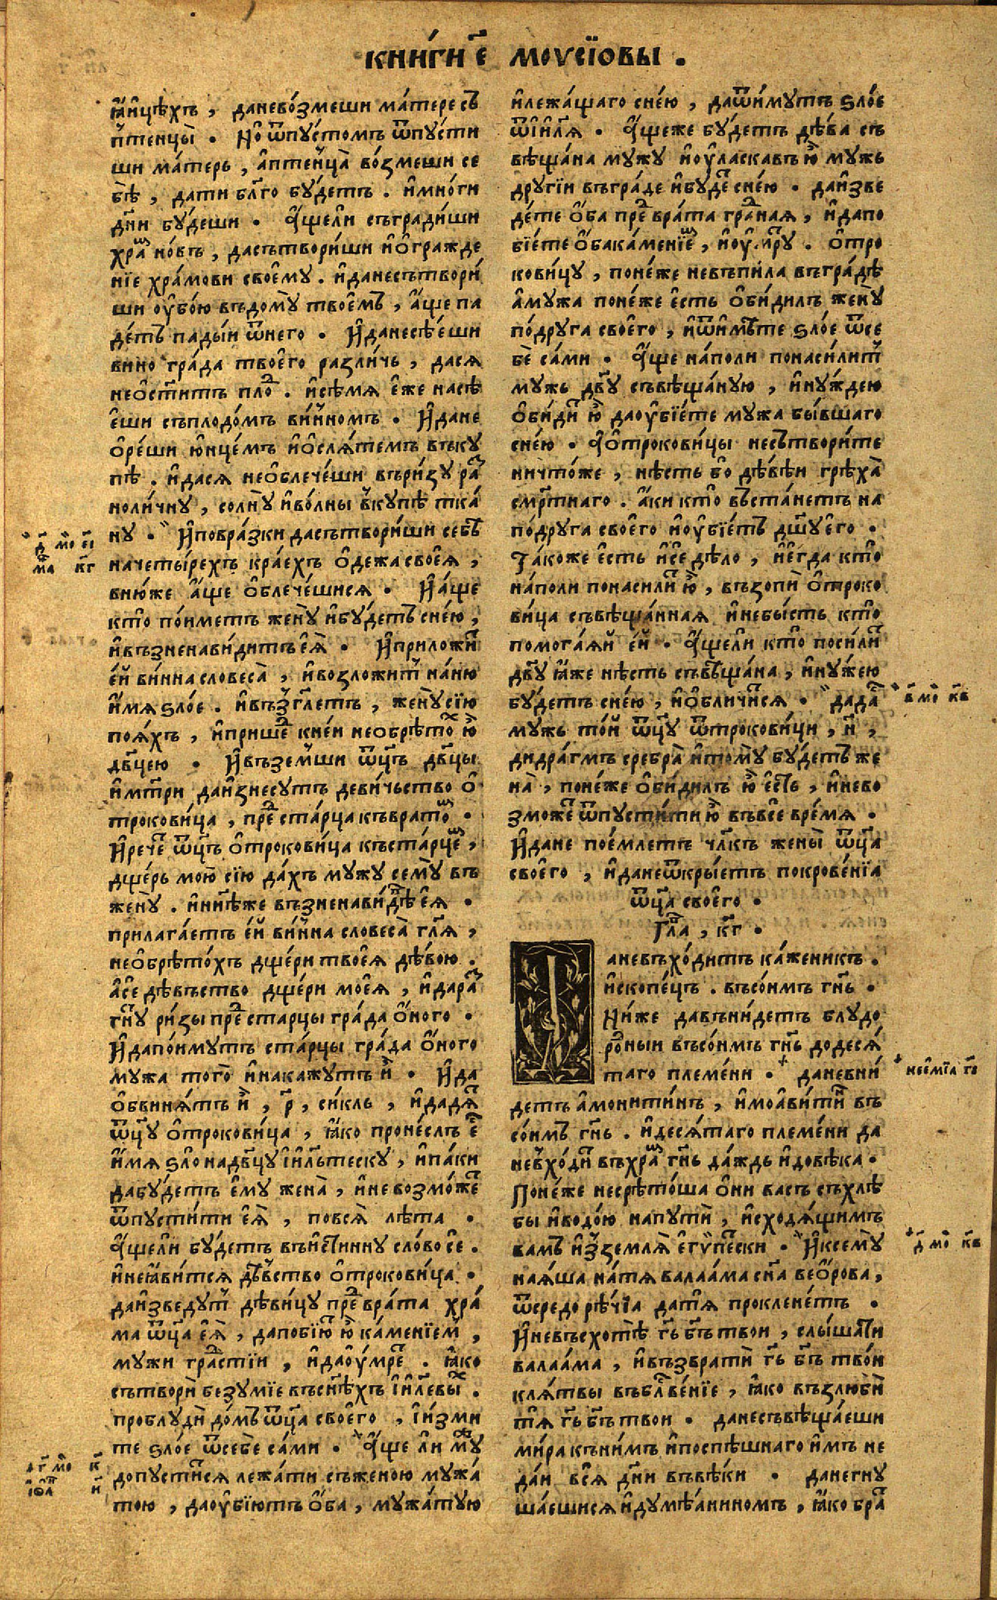 кни́ги є҃ моѵсїовы .
ꙗ҆и҆цѣхъ , даневоз̾меши ма́тере съ
п̾тенцы̀ . Но̀ ѿпꙋстомъ ѿпꙋ́сти
ши ма́терь , а҆птенца̀ во́змеши се
бѣ , дати бл҃го бꙋ́детъ . и҆мно́ги
дн҃и бꙋ́деши . А҆́щели съгради́ши
хра́м но́въ , дасътвори́ши и҆о҆гражде
нїе хра́мови своемꙋ . и҆данесътвори́
ши ᲂу҆бо́ю въдомꙋ̀ твое́мъ , а҆́ще па
де́тъ пады́и ѿнего . И҆данесѣ́еши
вино̀ гра́да твоего̀ разли́чь , дася
неѡст҃итъ пло́д . и҆сѣ́мя е҆́же насѣ
е́ши съплодо́мъ ви́ннομъ . И҆дане
ѻ҆ре́ши ю҆нце́мъ и҆осля́темъ въкꙋ
пѣ . и҆дася необлече́ши въри́зꙋ ра҆з
ноли́чнꙋ , солнꙋ и҆во́лны вкꙋпѣ тка́
нꙋ . И҆побра́зки дасътвори́ши себѣ
начеты́рехъ кра́ехъ ѻ҆де́жа своея̀ ,
вню́же а҆́ще ѻ҆блече́шися . И҆а҆́ще
кто̀ по́иметъ женꙋ̀ и҆бꙋ́детъ сне́ю ,
и҆възненави́дитъ е҆я̀ . И҆приложи́т
е҆́й ви́нна словеса̀ , и҆возложи́т на́ню
и҆́мя ѕло́е . и҆въз̾гл҃етъ , женꙋ̀ сїю
поя́хъ , и҆прише́д кне́и неѡбрѣто́х ю҆̀
дв҃цею . И҆въземши ѿц҃ъ дв҃цы
и҆мт҃ри даи҆знесꙋтъ деви́чьство ѻ҆
трокови́ца , пред ста́рца къврато́м .
И҆рече́т ѿц҃ъ ѻ҆трокови́ца къста́рцем ,
дще́рь мою̀ сїю да́хъ мꙋжꙋ семꙋ̀ въ
женꙋ̀ . и҆ни́нѣже възненави́дѣ е҆я̀ .
прилага́етъ е҆́й ви́нна словеса̀ гл҃я ,
неѡбрѣто́хъ дще́ри твоея̀ дѣ́вою .
а҆сѐ дѣ́въство дще́ри моея̀ , и҆дара́з
гнꙋ̀ ри́зы пред ста́рцы гра́да ѻ҆́ного .
И҆дапо́имꙋтъ ста́рцы гра́да ѻ҆́ного
мꙋ́жа того̀ и҆нака́жꙋтъ и҆̀ . И҆да
ѻ҆бвиня́тъ и҆̀ , р҃ , си́кль , и҆дадя́т
ѿц҃ꙋ ѻ҆трокови́ца , ꙗ҆́ко проне́слъ е҆́
и҆́мя ѕло̀ надв҃цꙋ і҆и҃льтескꙋ , и҆па́ки
дабꙋ́детъ е҆мꙋ̀ жена̀ , и҆невозмо́жет
ѿпꙋсти́ти е҆я̀ , повся̀ лѣ́та .
А҆́щели бꙋ́детъ въи҆́стиннꙋ сло́во се .
и҆неꙗ҆ви́тся дѣ́вство ѻ҆трокови́ца .
даи҆зведꙋт дѣви́цꙋ пред врата̀ хра́
ма ѿц҃а е҆я̀ , дапобїю́т ю҆̀ ка́менїем ,
мꙋ́жи гра́дстїи , и҆даᲂу҆́мрет . ꙗ҆́ко
сътворѝ безꙋ́мїе въсн҃ѣхъ і҆и҃левых .
проблꙋдѝ до́мъ ѿц҃а своего̀ , і҆и҆зми́
те ѕло́е ѿсебѐ са́ми . А҆́ще ли мꙋ́ж
допꙋсти́тся лежа́ти съжено́ю мꙋжа́
тою , даᲂу҆бїю́тъ ѻ҆́ба , мꙋжа́тꙋю
и҆лежа́щаго сне́ю , даѿи́мꙋтъ ѕло́е
ѿі҆и҃ля . А҆́щеже бꙋ́детъ дѣ́ва съ
вѣща́на мꙋжꙋ и҆ᲂу҆ласкавъ ю҆̀ мꙋжь
дрꙋгїи въгра́де и҆бꙋ́дет сне́ю . даи҆зве
де́те ѻ҆́ба пред врата̀ гра́дная , и҆дапо
бїе́те ѻ҆́бака́менїем , и҆ᲂу҆́мрꙋ . ѻ҆тро
кови́цꙋ , поне́же невъпи́ла въгра́дѣ
а҆мꙋ́жа поне́же е҆́сть ѻ҆би́дилъ женꙋ̀
по́дрꙋга своего̀ , и҆ѿи҆мѣте ѕло́е ѿсе
бѐ са́ми . А҆́ще на́поли понаси́лит
мꙋ́жь дв҃ꙋ съвѣща́нꙋю , и҆нꙋждею
ѻ҆би́дит ю҆̀ даᲂу҆бїе́те мꙋ́жа бы́вшаго
сне́ю . А҆ѻ҆трокови́цы несътвори́те
ничто́же , нѣ́сть бо дѣ́вѣи грѣха̀
смр҃тнаго . а҆́ки кто̀ въста́нетъ на
по́дрꙋга своего̀ и҆ᲂу҆бїе́тъ дш҃ꙋ е҆го̀ .
Та́коже е҆́сть и҆сѐ дѣ́ло , и҆е҆гда̀ кто̀
на́поли понаси́лит ю҆̀ , възопѝ ѻ҆троко
ви́ца съвѣща́нная и҆небы́сть кто̀
помога́яй е҆́й . А҆́щели кто̀ поси́лит
дв҃ꙋ ꙗ҆́же нѣ́сть съвѣщана , и҆нꙋ́жею
бꙋ́детъ сне́ю , и҆ѻ҆бличи́тся . дада́ст
мꙋ́жь то́й ѿц҃ꙋ ѿтрокови́ци , н҃ ,
дидра́гмъ сребра̀ и҆томꙋ̀ бꙋ́детъ же
на̀ , поне́же ѻ҆би́дилъ ю҆̀ е҆́сть , и҆нево
змо́жет ѿпꙋсти́ти ю҆̀ въвсѐ вре́мя .
И҆дане пое́млетъ чл҃къ жены̀ ѿц҃а
своего̀ , и҆данеѿкры́етъ покрове́нїа
ѿц҃а своего̀ .
Гла҃ , кг҃ .
Даневъхо́дитъ ка́женикъ .
и҆скопе́цъ . въсо́имъ гн҃ь .
Ни́же давъни́детъ блꙋдо
ро́дныи въсо́имъ гн҃ь додеся́
таго пле́мени . даневни́
детъ а҆мони́тинъ , и҆моа҆ви́тин въ
со́имъ гн҃ь . и҆деся́таго пле́мени да
невхо́дит въхра́м гн҃ь да́ждь и҆довѣ́ка .
Поне́же несрѣто́ша ѻ҆нѝ ва́съ съхлѣ́
бы и҆водо́ю напꙋтѝ , и҆сходя́щимъ
ва́мъ и҆зземля̀ е҆гѵ́пески . И҆ксемꙋ̀
ная́ша на́тя валаа́ма сн҃а веѻ҆́рова ,
ѿсредорѣ́чїа дат̾я̀ проклене́тъ .
И҆невъсхотѣ̀ гь҃ бг҃ъ твои , слы́шати
валаа́ма , и҆възвратѝ гь҃ бг҃ъ твои
кля́твы въблв҃е́нїе , ꙗ҆́ко възлюбѝ
тя̀ гь҃ бг҃ъ твои . данесъвѣща́еши
ми́ра къни́мъ и҆поспѣ́шнаго и҆́мъ не
да́и вся̀ дн҃и въвѣ́ки . данегнꙋ
ша́ешися и҆дꙋмѣ́анином , ꙗ҆́ко бра́т
неемїа гі҃